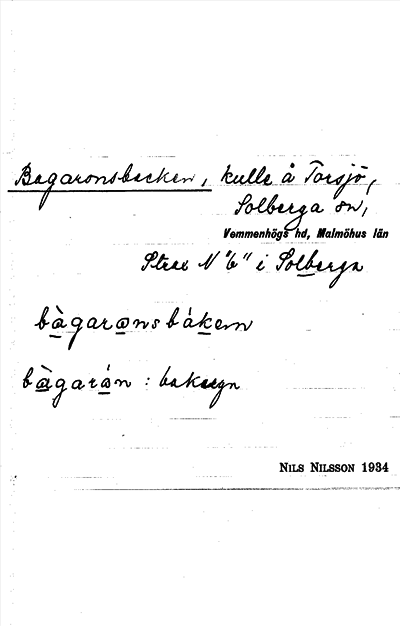 Bagaronsbacken, kulle å Torsjö,
Solberga sn,
Vemmenhögs hd, Malmöhus län
Strax N "b" i Solberga
bàgaronsbákern
bàgarán : 
NILS NILSSON 1934